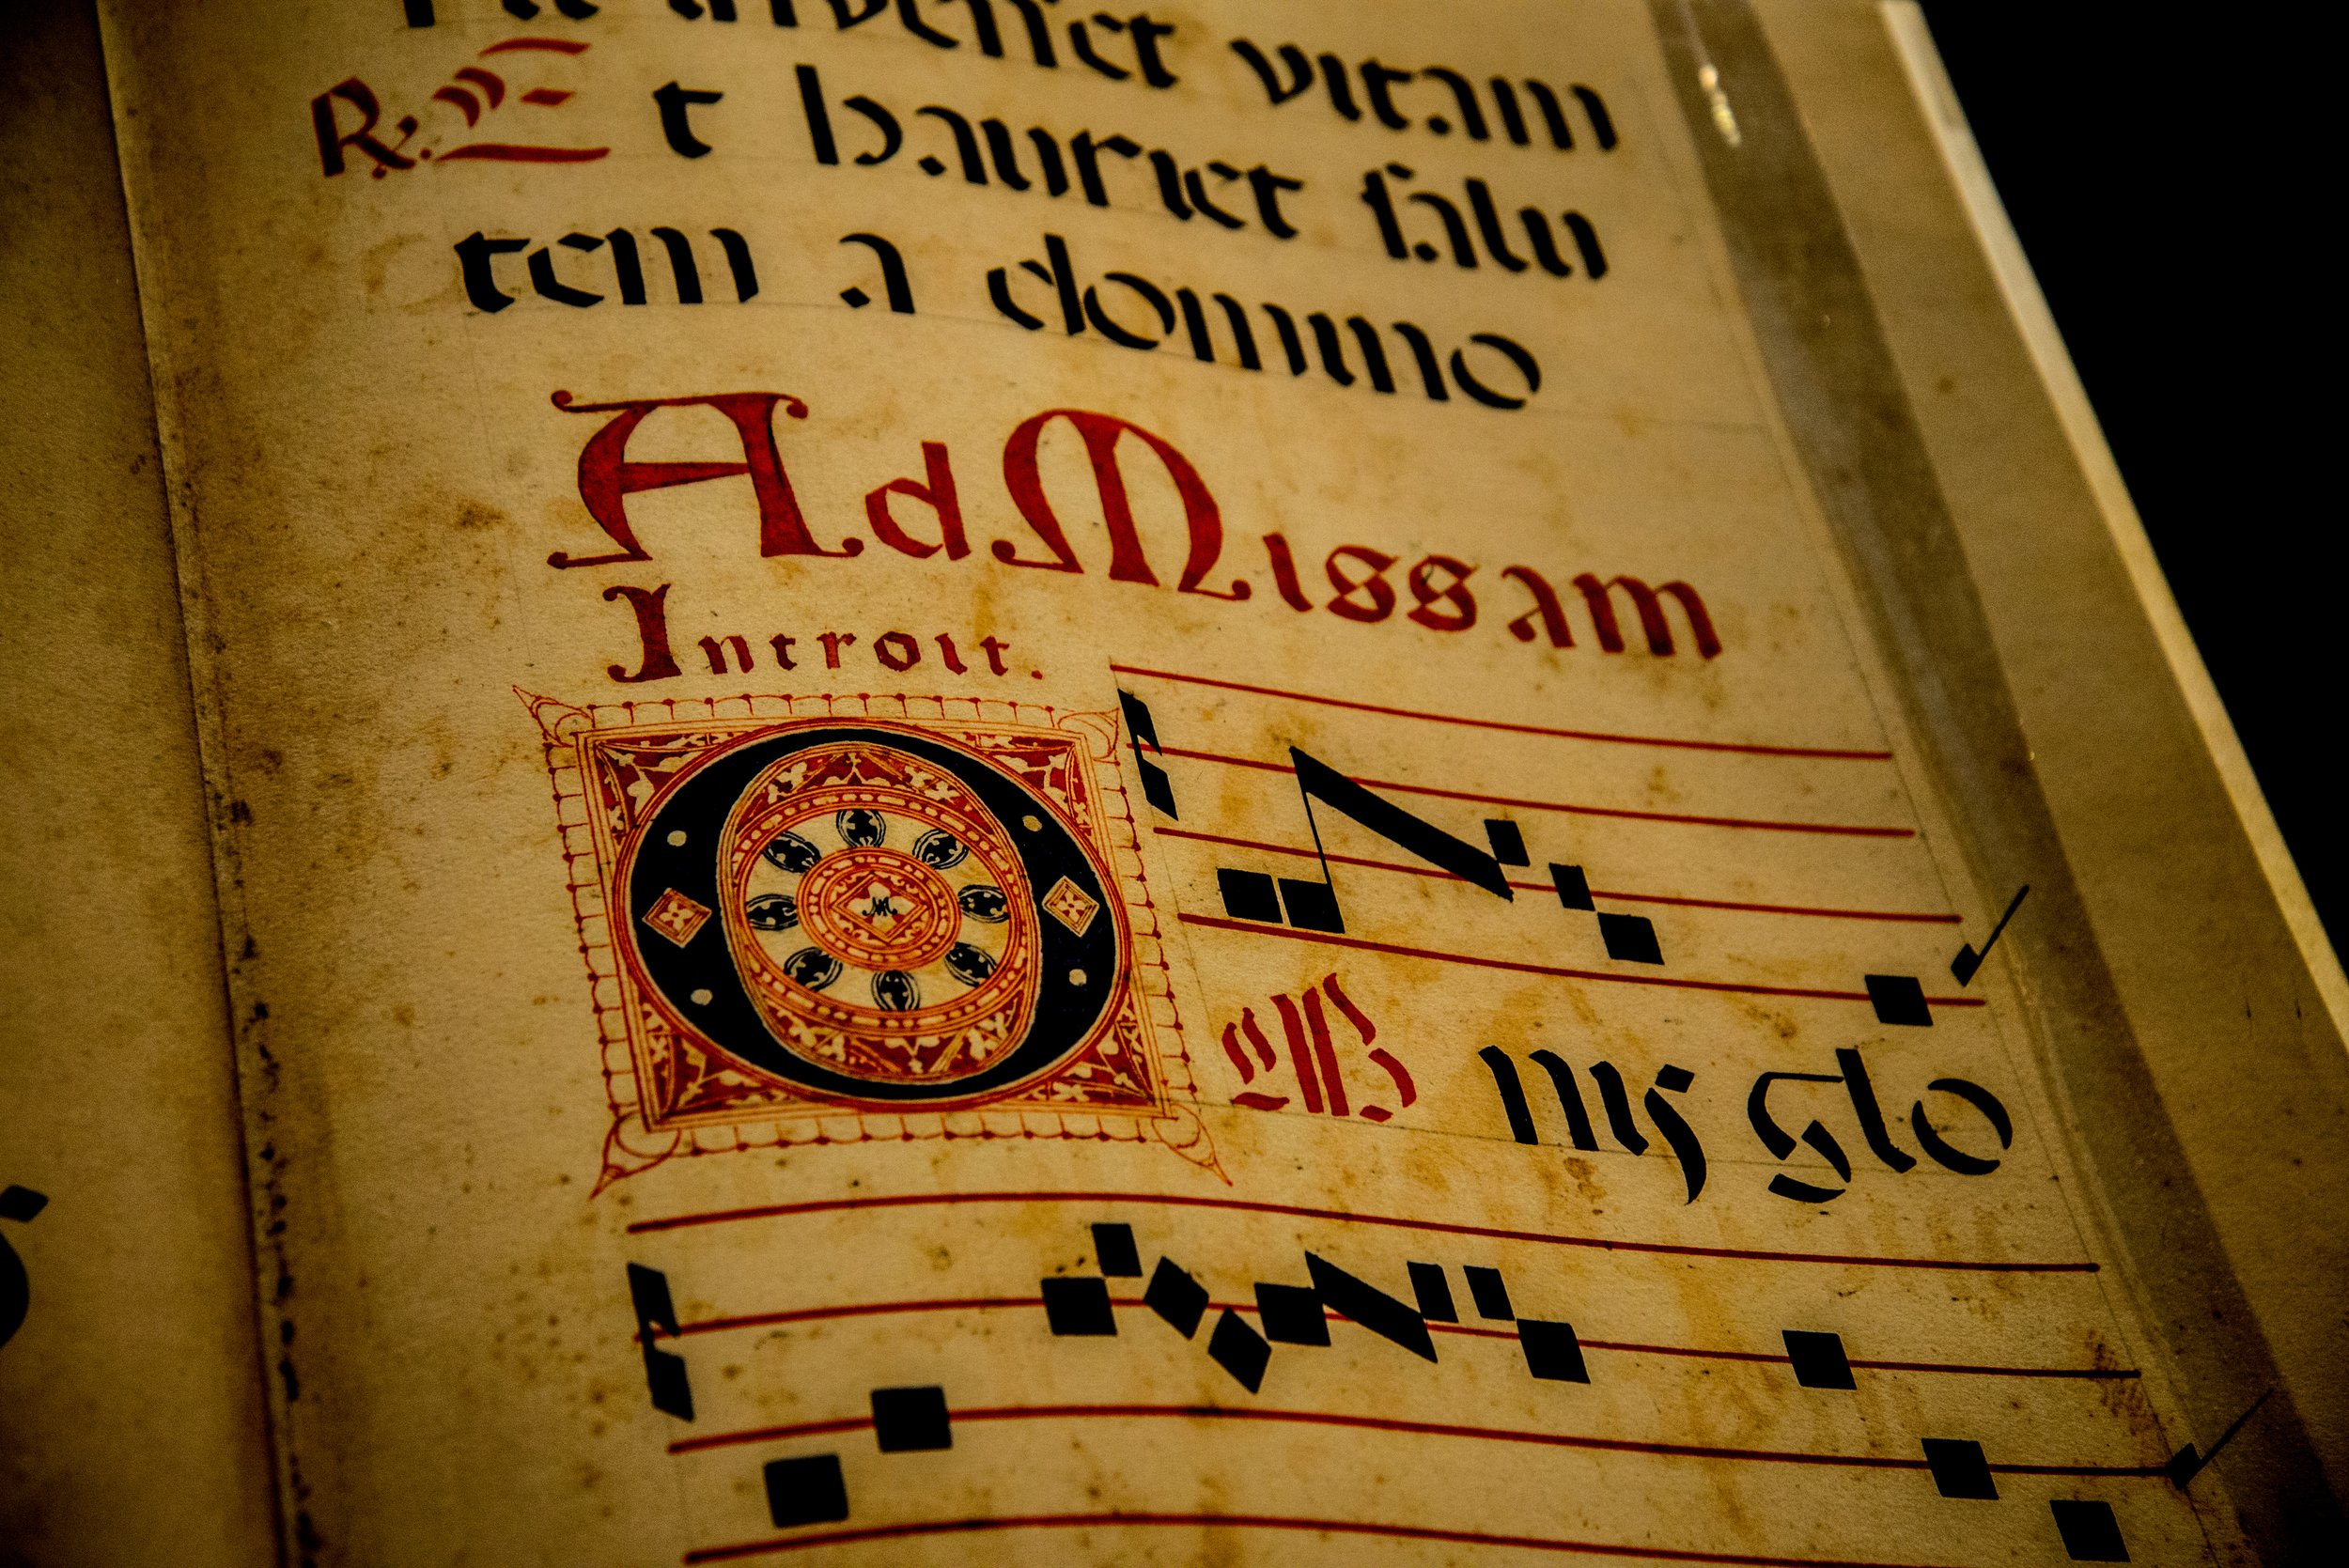 invenet vitam
R. Et hauriet salu
tem a domino
Ad Missam
Introit.
OMnis glo